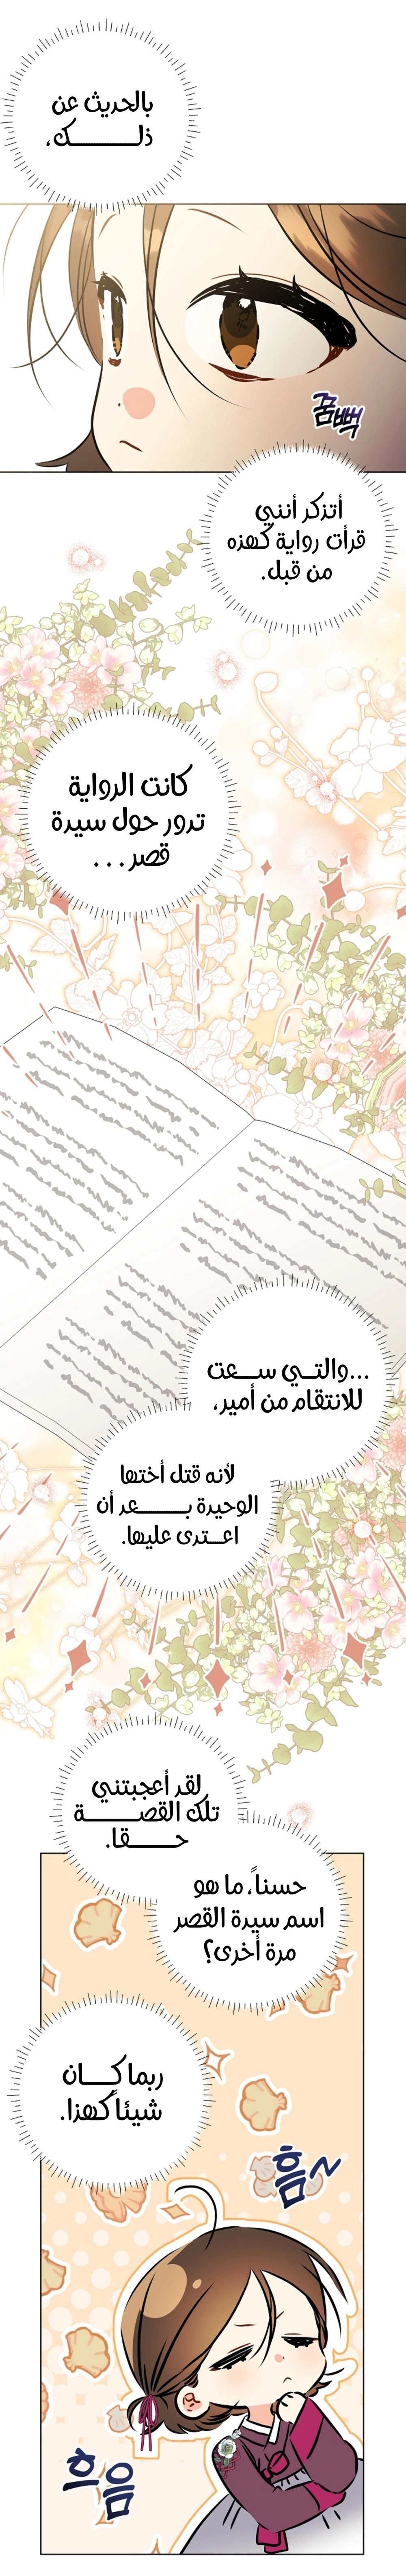 بالحديث عن
ذلـــــك،
꿈뻑
أتذكر أنني
قرأت رواية كهذه
من قبل.
كانت الرواية
تدور حول سيرة
قصر...
...والتـي سـعت
للانتقام من أمير،
لأنه قتل أختها
الوحيدة بـــــعد أن
اعـتدى عليها.
لقد أعجبتني
تلك القصـــــة
حـــــقا.
حسناً، ما هو
اسم سيدة القصر
مرة أخرى؟
ربما كـــان
شيئاً كهذا.
흠~
흐음